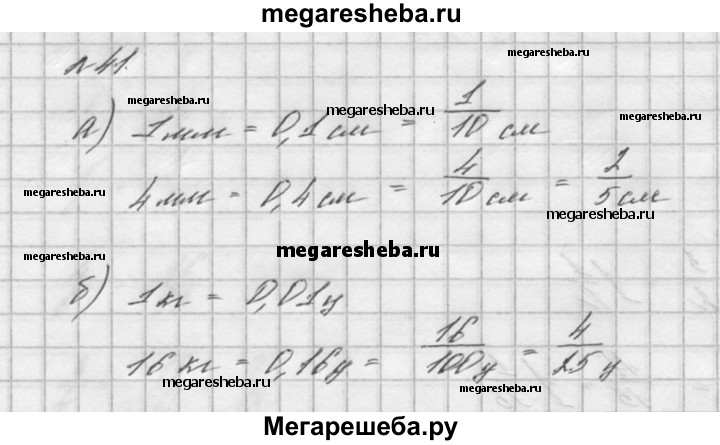 megaresheba.ru
№41.
megaresheba.ru
megaresheba.ru
megaresheba.ru
а) 1мм = 0,1см = 1/10 см
megaresheba.ru
4мм = 0,4см = 4/10 см = 2/5 см
megaresheba.ru
megaresheba.ru
megaresheba.ru
megaresheba.ru
б) 1кг = 0,01ц
16кг = 0,16ц = 16/100 ц = 4/25 ц
megaresheba.ru
megaresheba.ru
Мегарешеба.ру